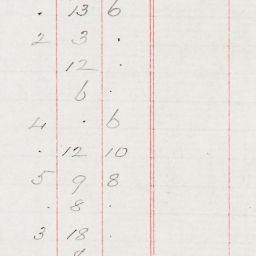 . 13 6
2 3 .
12 .
6 .
4 . 6
. 12 10
5 9 8
. 8 .
3 18 .